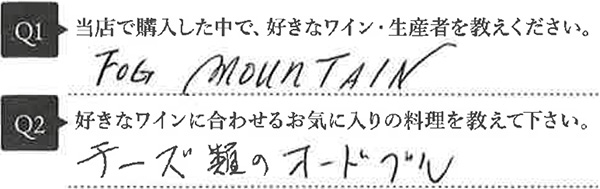 Q1 当店で購入した中で、好きなワイン・生産者を教えください。
FOG MOUNTAIN
Q2 好きなワインに合わせるお気に入りの料理を教えて下さい。
チーズ類のオードブル